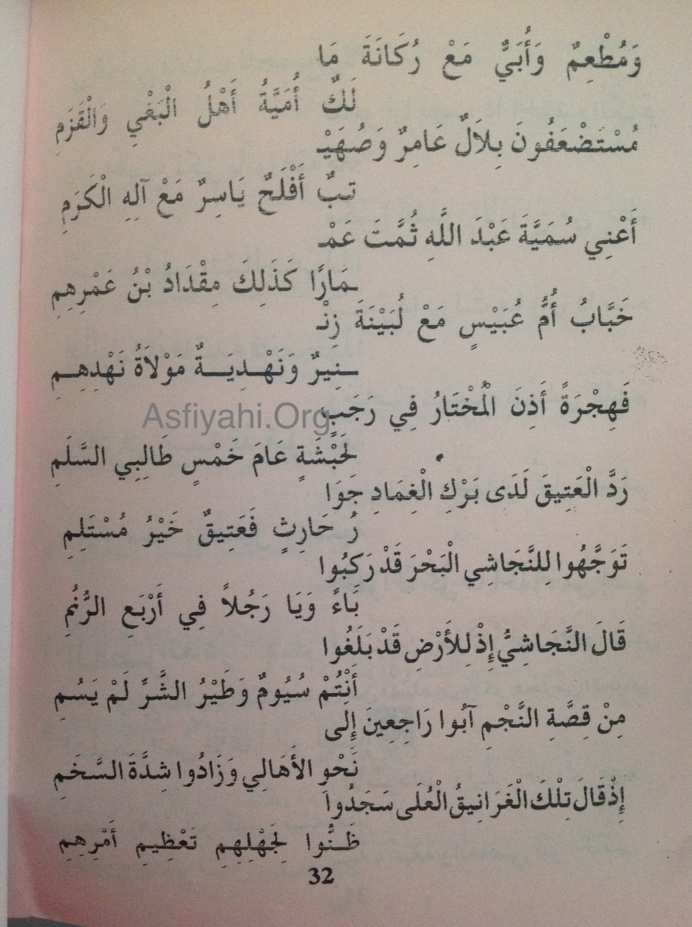 وَمُطْعِمٌ وَأُبَيٌّ مَعْ رُكَانَةَ مَا
لَكٌ أُمَيَّةُ أَهْلُ الْبَغْيِ وَالْقَزَمِ
مُسْتَضْعَفُونَ بِلَالٌ عَامِرٌ وَصُهَيْـ
ـبٌ أَفْلَحٌ يَاسِرٌ مَعْ آلِهِ الْكَرَمِ
أَعْنِي سُمَيَّةَ عَبْدَ اللَّهِ ثُمَّتَ عَمْـ
ـمَارًا كَذَلِكَ مِقْدَادُ بْنُ عَمْرِهِمِ
خَبَّابُ أُمُّ عُبَيْسٍ مَعْ لُبَيْنَةَ زِنْـ
ـنِيرٌ وَنَهْدِيَةٌ مَوْلَاةُ نَهْدِهِمِ
فَهِجْرَةً أَذِنَ الْمُخْتَارُ فِي رَجَبٍ
Asfiyahi.Org
لِحَبْشَةٍ عَامَ خَمْسٍ طَالِبِي السَّلَمِ
رَدَّ الْعَتِيقَ لَدَى بَرْكِ الْغِمَادِ جَوَا
رُ حَارِثٍ فَعَتِيقٌ خَيْرُ مُسْتَلِمِ
تَوَجَّهُوا لِلنَّجَاشِي الْبَحْرَ قَدْ رَكِبُوا
بَاءً وَيَا رَجُلاً فِي أَرْبَعِ الرُّنُمِ
قَالَ النَّجَاشِيُّ إِذْ لِلأَرْضِ قَدْ بَلَغُوا
أَنْتُمْ سُيُومٌ وَطَيْرُ الشَّرِّ لَمْ يَسُمِ
مِنْ قِصَّةِ النَّجْمِ آبُوا رَاجِعِينَ إِلى
نَحْوِ الأَهَالِي وَزَادُوا شِدَّةَ السَّخَمِ
إِذْ قَالَ تِلْكَ الْغَرَانِيقُ الْعُلَى سَجَدُوا
ظَنُّوا لِجَهْلِهِمِ تَعْظِيمِ أَمْرِهِمِ
32